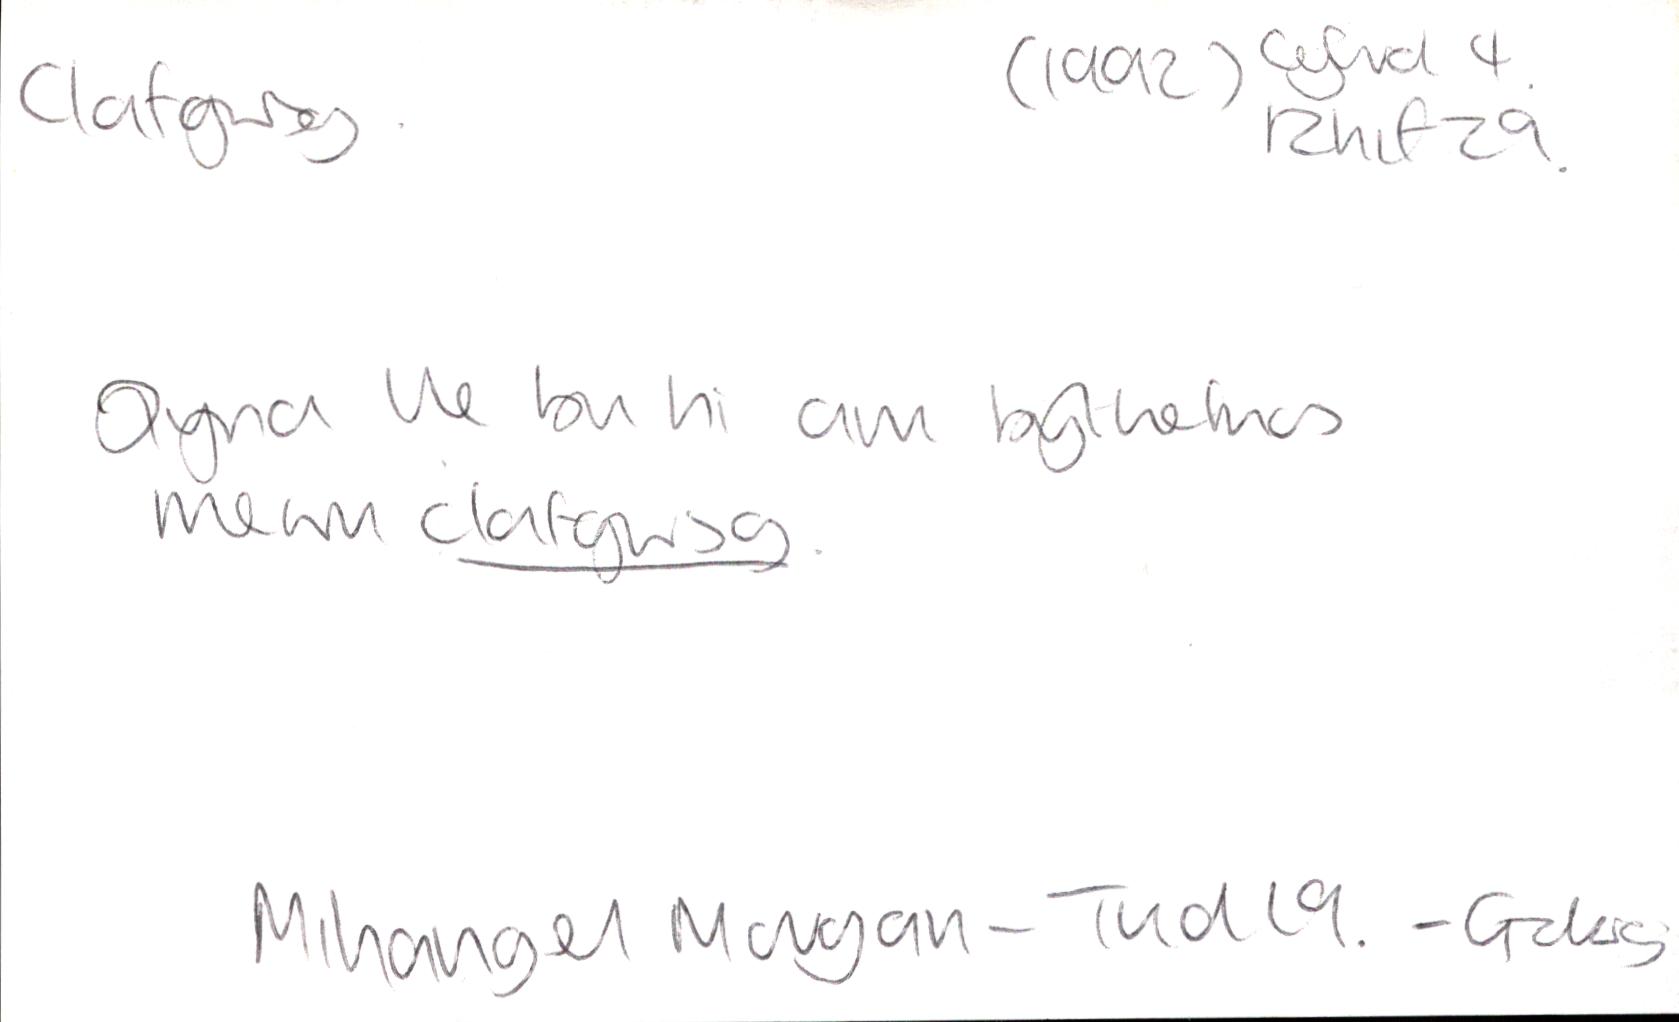 Clafgwsg. (1992) Cyfrol 4.
Rhif 29.
Dyna lle bu hi am bythefnos
mewn clafgwsg.
Mihangel Morgan – Tud 19. –